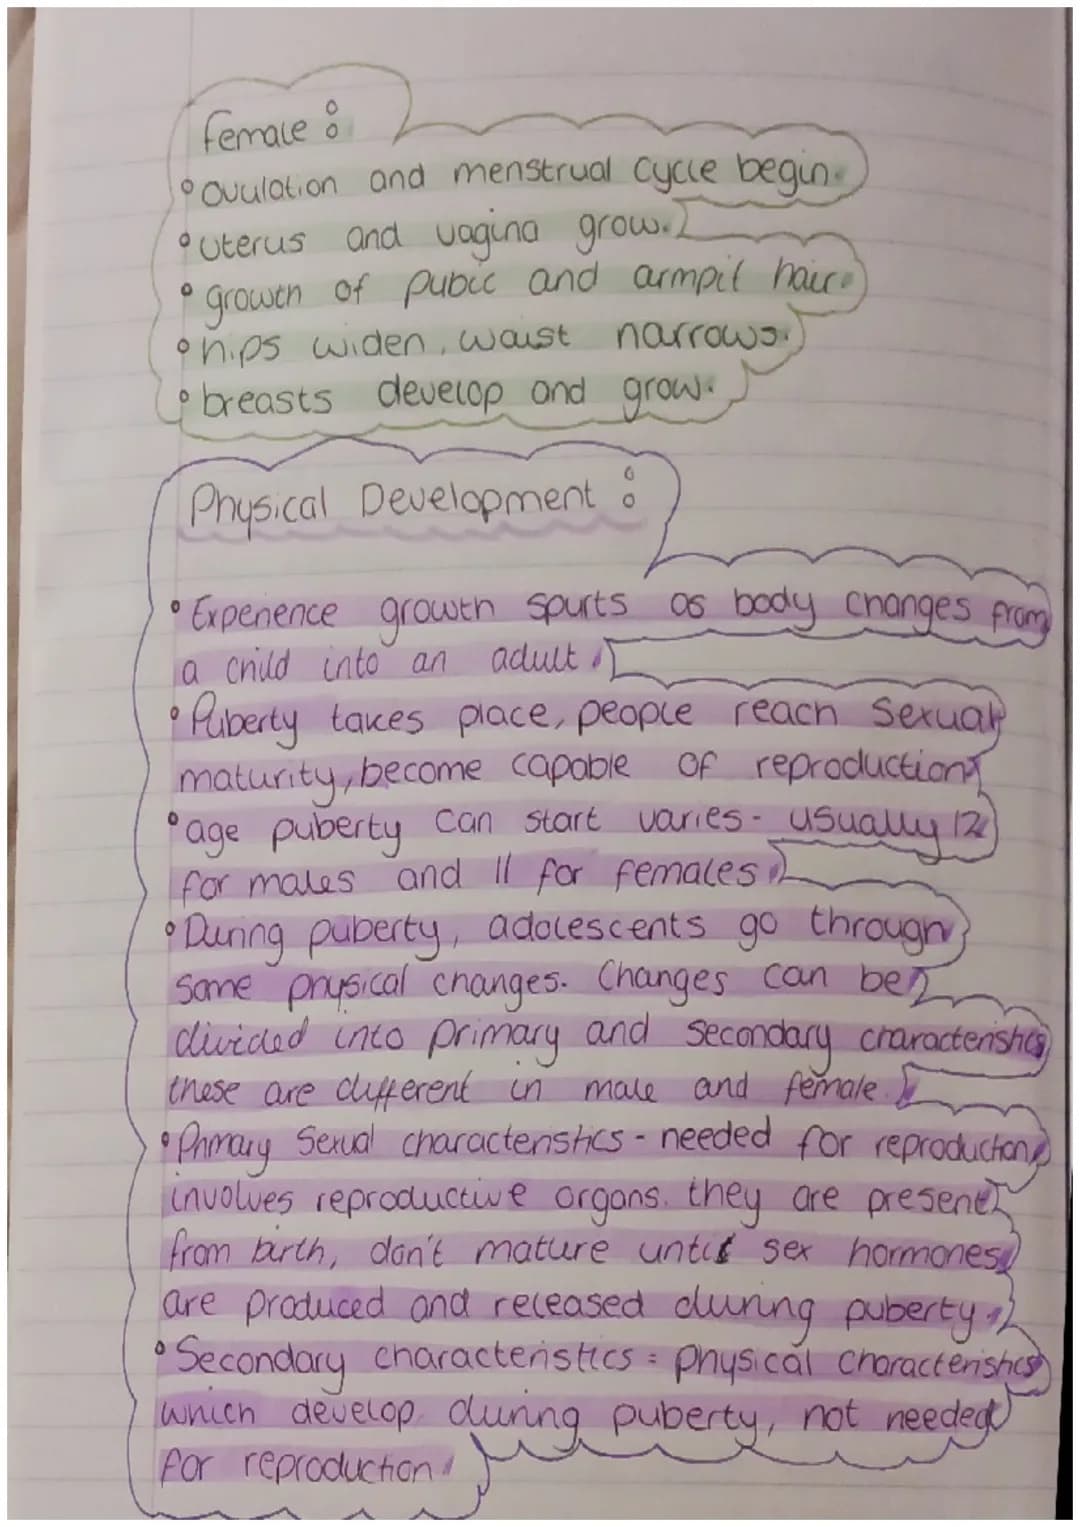 Female:
• ovulation and menstrual cycle begin.
• uterus and vagina grow.
• growth of pubic and armpit hair.
• hips widen, waist narrows.
• breasts develop and grow.
Physical Development:
• Experience growth spurts as body changes from
a child into an adult.
• Puberty takes place, people reach sexual
maturity, become capable of reproduction
• age puberty can start varies - usually 12
for males and 11 for females.
• During puberty, adolescents go through
some physical changes. Changes can be
divided into primary and secondary characteristics
these are different in male and female.
• Primary sexual characteristics - needed for reproduction,
involves reproductive organs. they are present
from birth, don't mature until sex hormones
are produced and released during puberty.
• Secondary characteristics = physical characteristics
which develop during puberty, not needed
for reproduction.